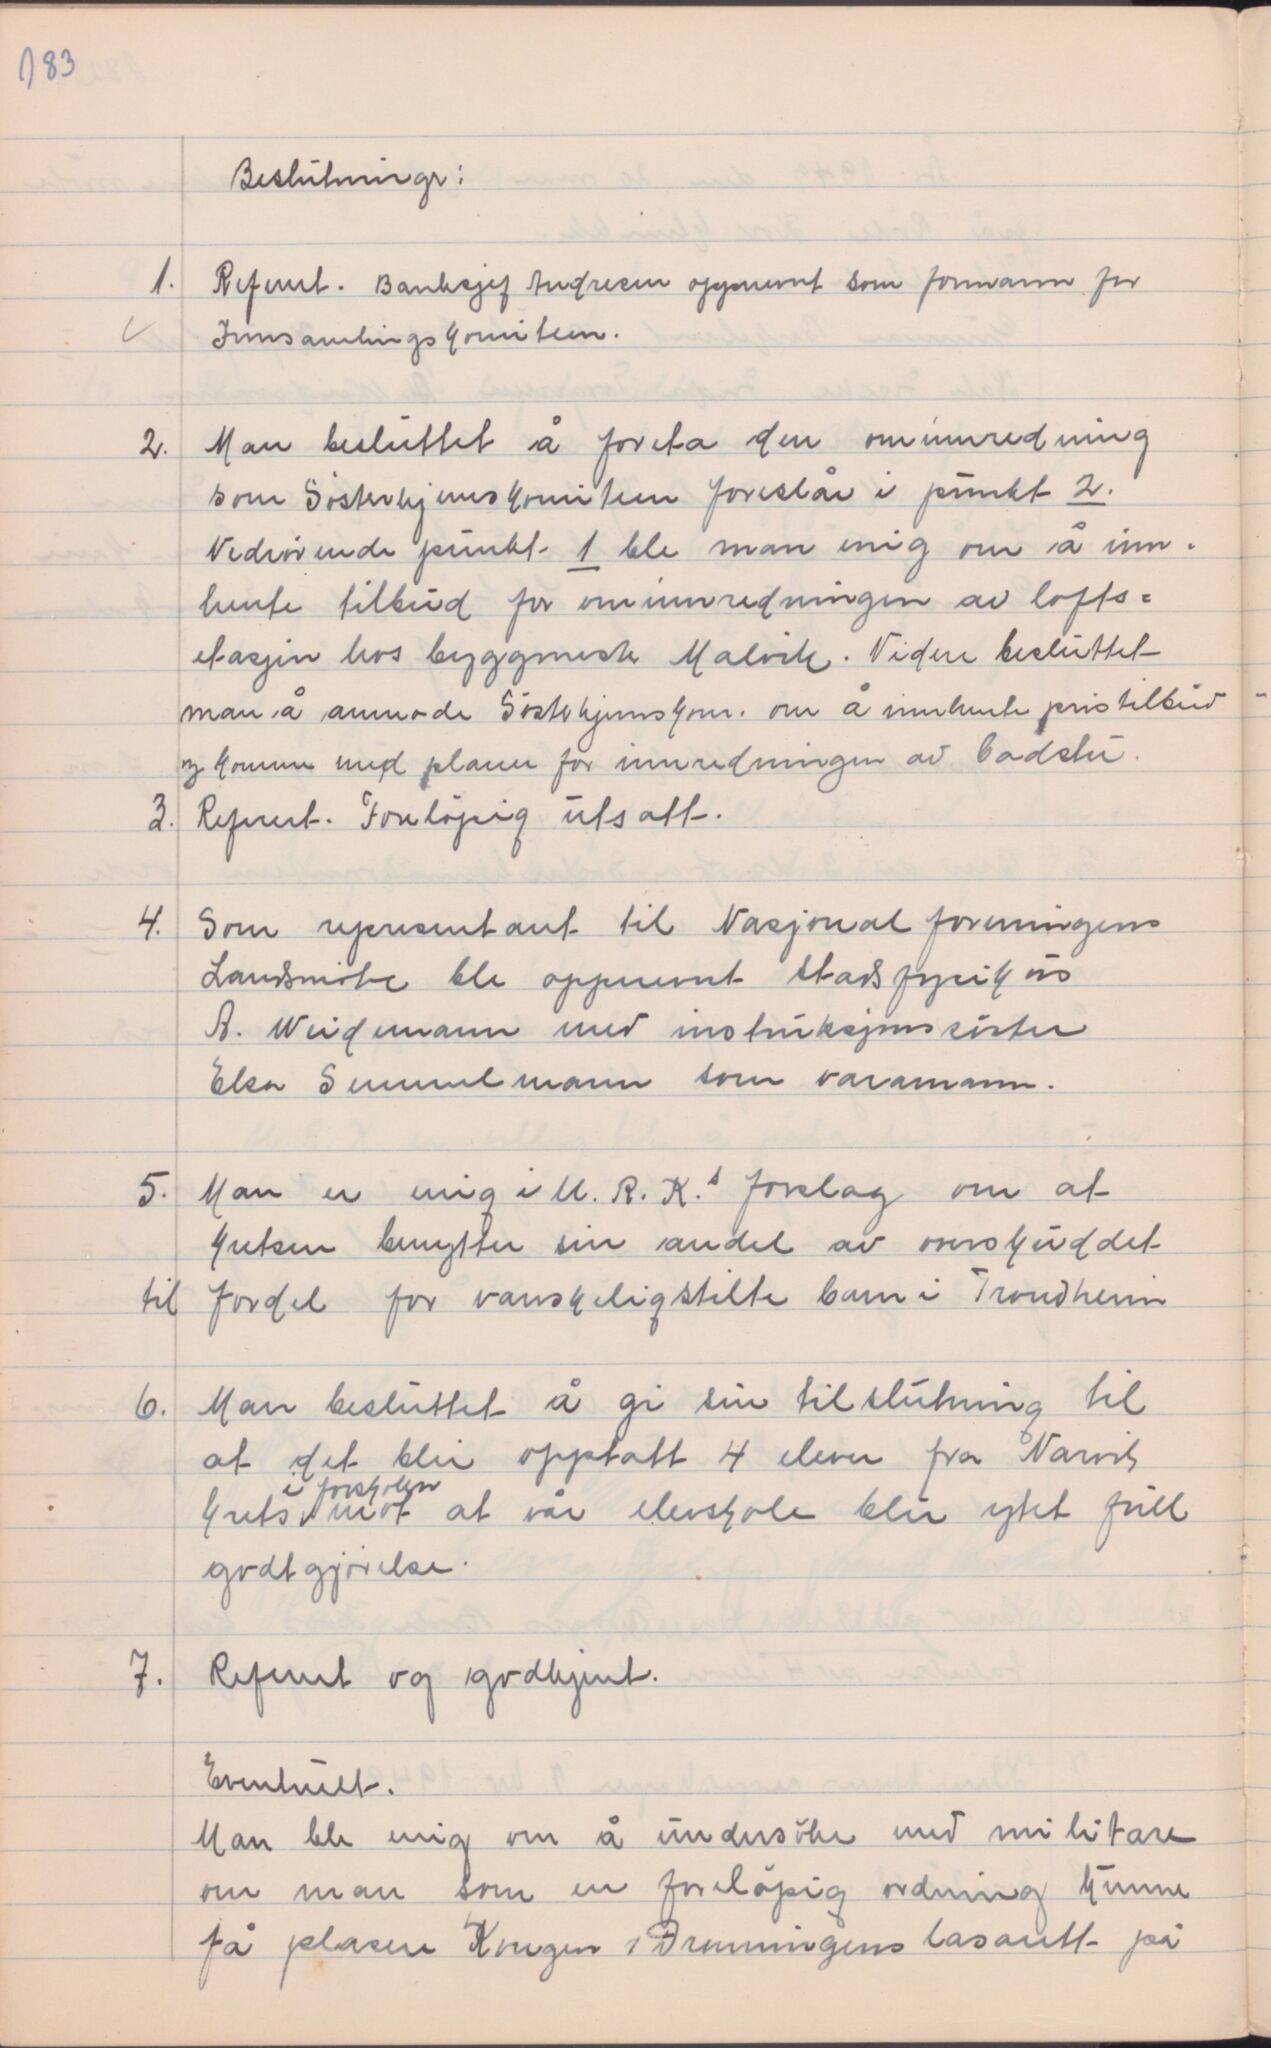 183
Beslutninger:
1. Referert. Banksjef Andresen oppnevnt som formann for
Innsamlingskomiteen.
2. Man besluttet å foreta den ominnredning
som Søsterhjemskomiteen foreslår i punkt 2.
Vedrørende punkt 1 ble man enig om å inn-
hente tilbud for ominnredningen av lofts=
etasjen hos byggmester Malvik. Videre besluttet
man å anmode Søsterhjemskom. om å innhente pristilbud
og komme med planer for innredningen av badstu.
3. Referert. Foreløpig utsatt.
4. Som representant til Nasjonalforeningens
Landsmøte ble oppnevnt stadsfysikus
A. Weidemann med instruksjonssøster
Elsa Semmelmann som varamann.
5. Man er enig i U. R. K.s forslag om at
kretsen benytter sin andel av overskuddet
til fordel for vanskeligstilte barn i Trondheim
6. Man besluttet å gi sin tilslutning til
at det blir opptatt 4 elever fra Narvik
i forskolen
krets mot at vår elevskole blir ytet full
godtgjørelse.
7. Referert og godkjent.
Eventuelt.
Man ble enig om å undersøke med militære
om man som en foreløpig ordning kunne
få plasere Kongen i Dronningens lasarett på